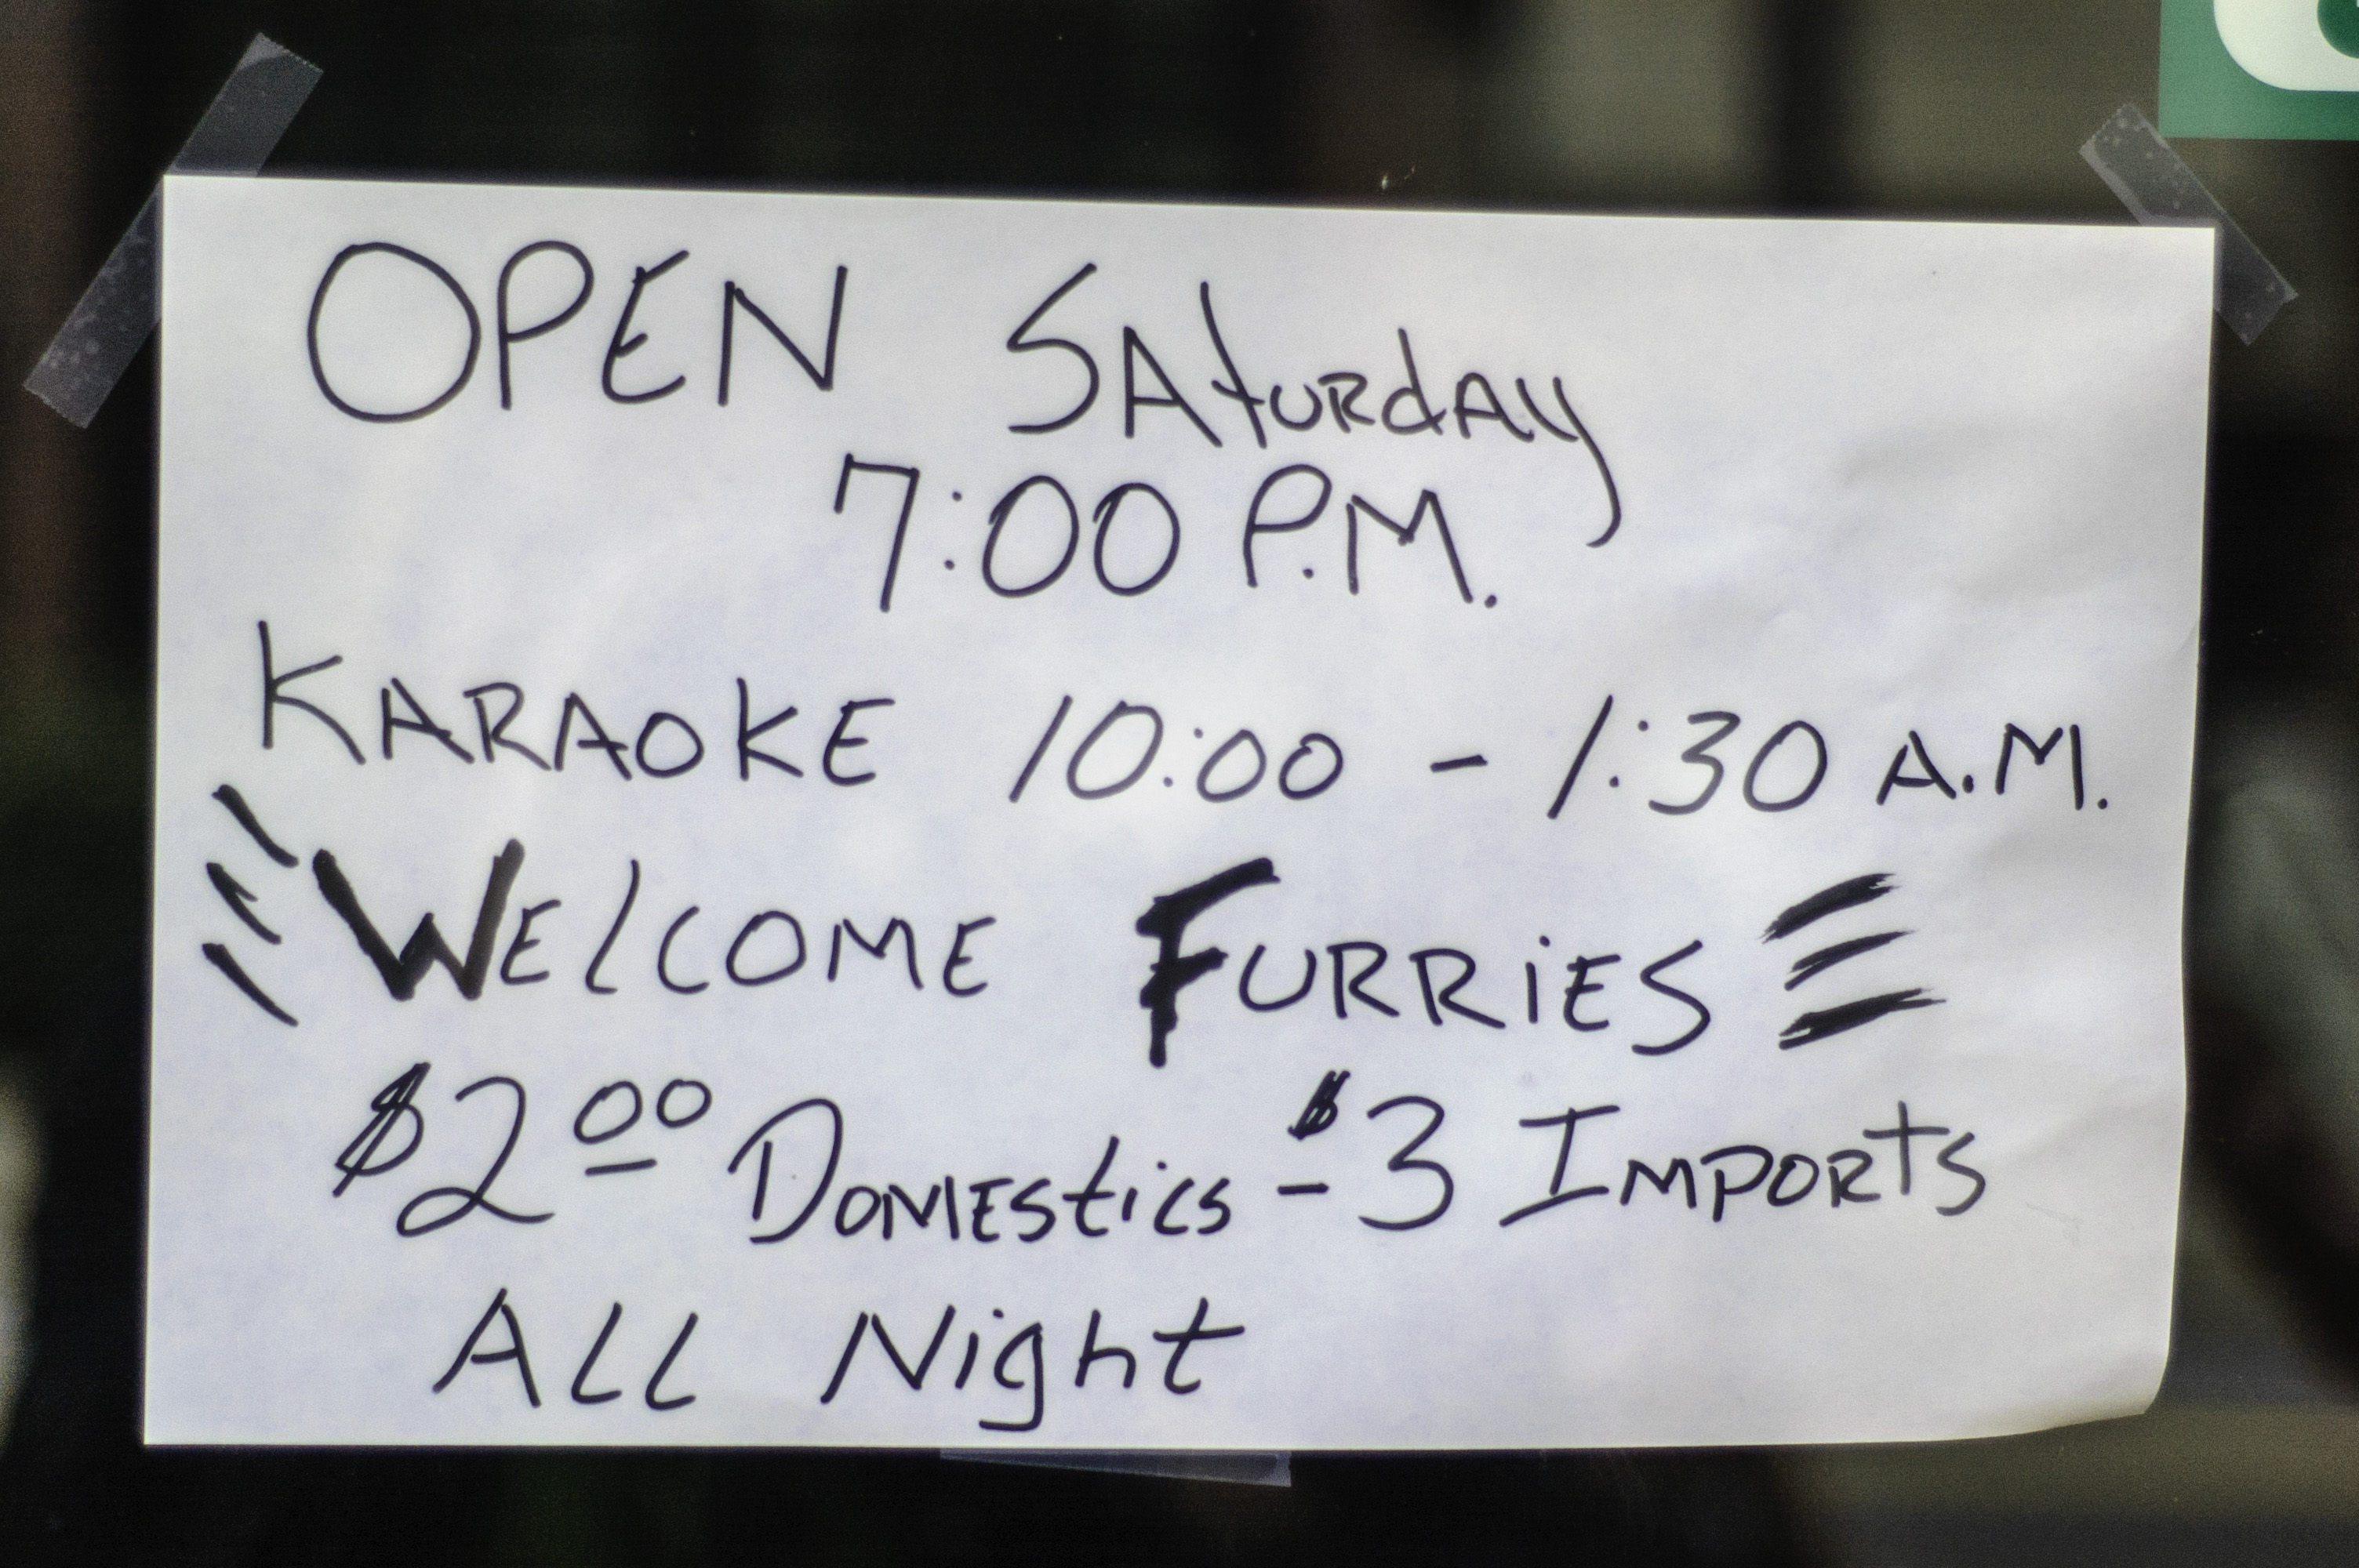 OPEN Saturday
7:00 P.M.
KARAOKE 10:00 - 1:30 A.M.
WELCOME FURRIES
$2.00 Domestics - $3 Imports
All Night